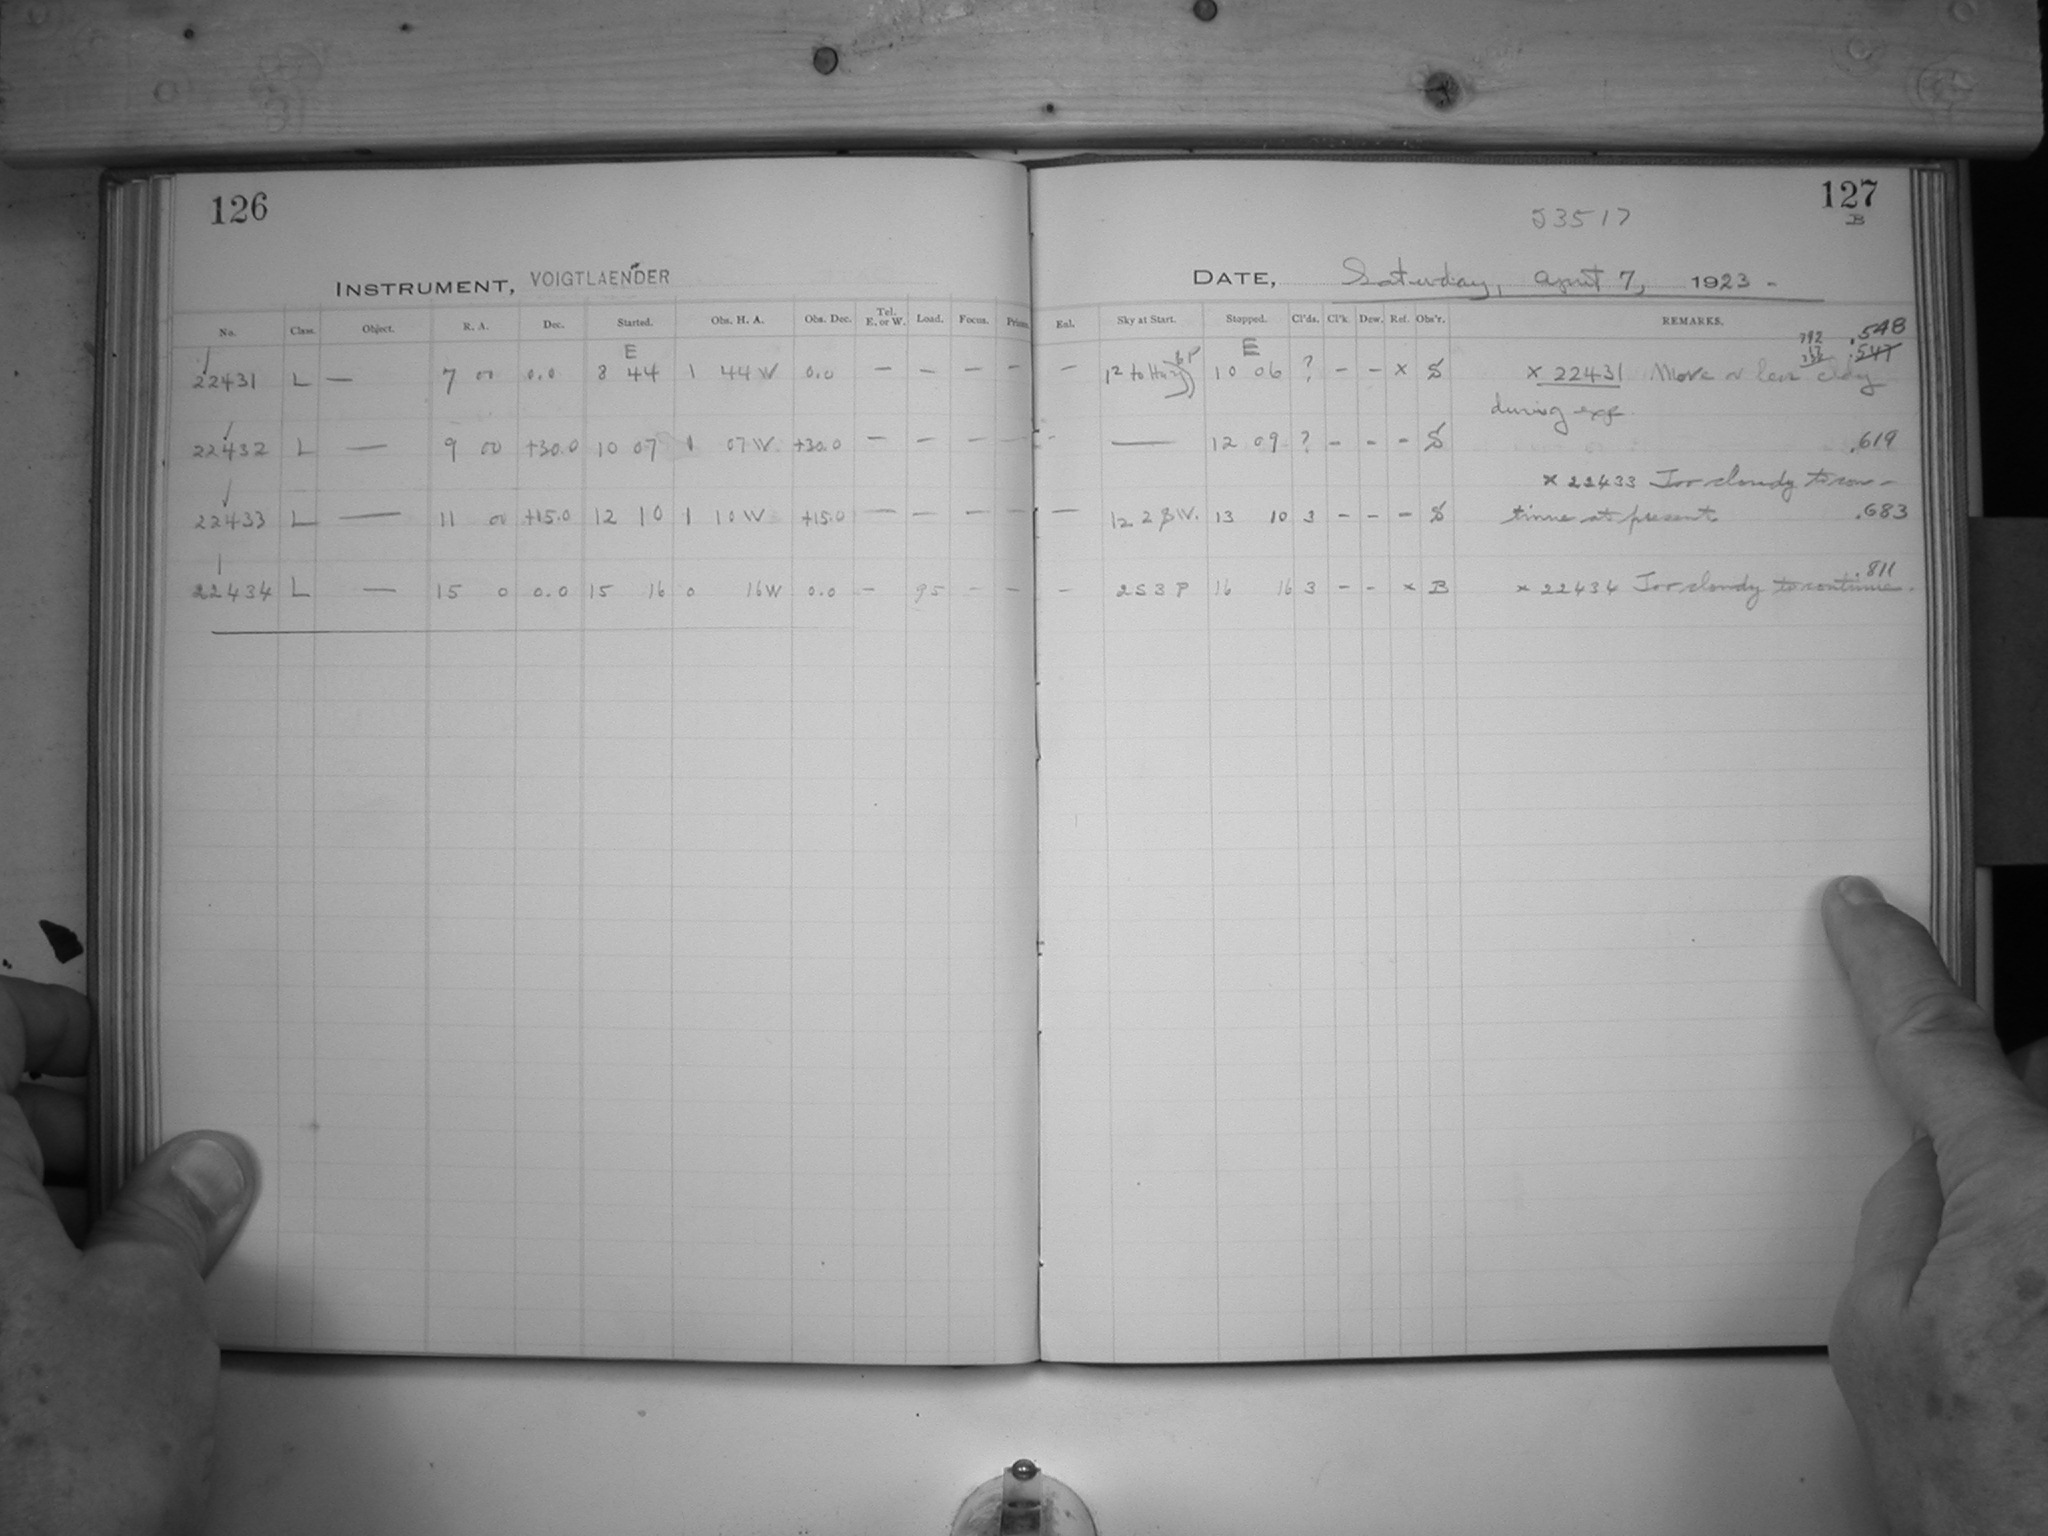 126
127
B
53517
INSTRUMENT, VOIGTLAENDER
DATE, Saturday, April 7, 1923 -
No. Class. Object. R. A. Dec. Started. Obs. H. A. Obs. Dec. Tel. E. or W. Load. Focus. Prism. Enl. Sky at Start. Stopped. Cl'ds. Cl'k Dew. Ref. Obs'r. REMARKS.
E E .548
.547
22431 L — 7 00 0.0 8 44 1 44 W 0.0 — — — — — 10 06 ? - - x S x 22431 More or less cldy
during exp.
22432 L — 9 00 +30.0 10 07 1 07 W +30.0 — — — — - — 12 09 ? - - - S .619
x 22433 Too cloudy to con-
22433 L — 11 00 +15.0 12 10 1 10 W +15.0 — — — — — 12 2 W. 13 10 3 - - - S tinue at present .683
.811
22434 L — 15 0 0.0 15 16 0 16 W 0.0 - 95 - - - 2 S 3 P 16 16 3 - - x B x 22434 Too cloudy to continue.